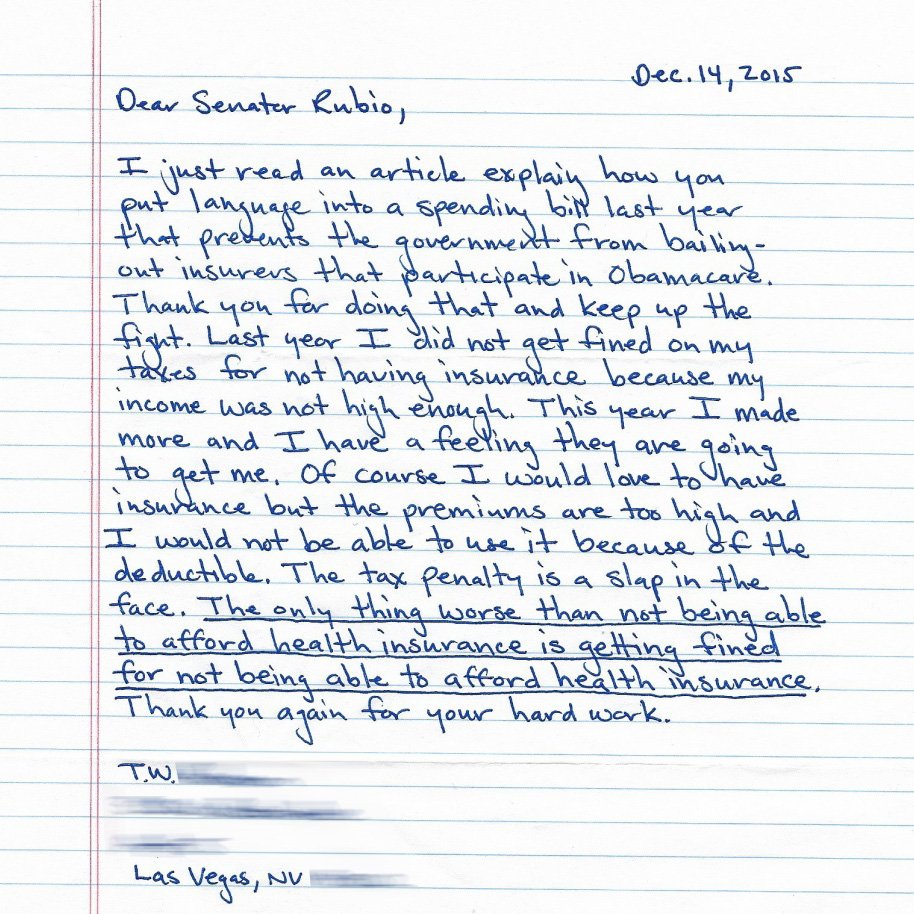 Dec. 14, 2015
Dear Senator Rubio,
I just read an article explain how you
put language into a spending bill last year
that prevents the government from bailing-
out insurers that participate in Obamacare.
Thank you for doing that and keep up the
fight. Last year I did not get fined on my
taxes for not having insurance because my
income was not high enough. This year I made
more and I have a feeling they are going
to get me. Of course I would love to have
insurance but the premiums are too high and
I would not be able to use it because of the
deductible. The tax penalty is a slap in the
face. The only thing worse than not being able
to afford health insurance is getting fined
for not being able to afford health insurance.
Thank you again for your hard work.
T.W.
Las Vegas, NV